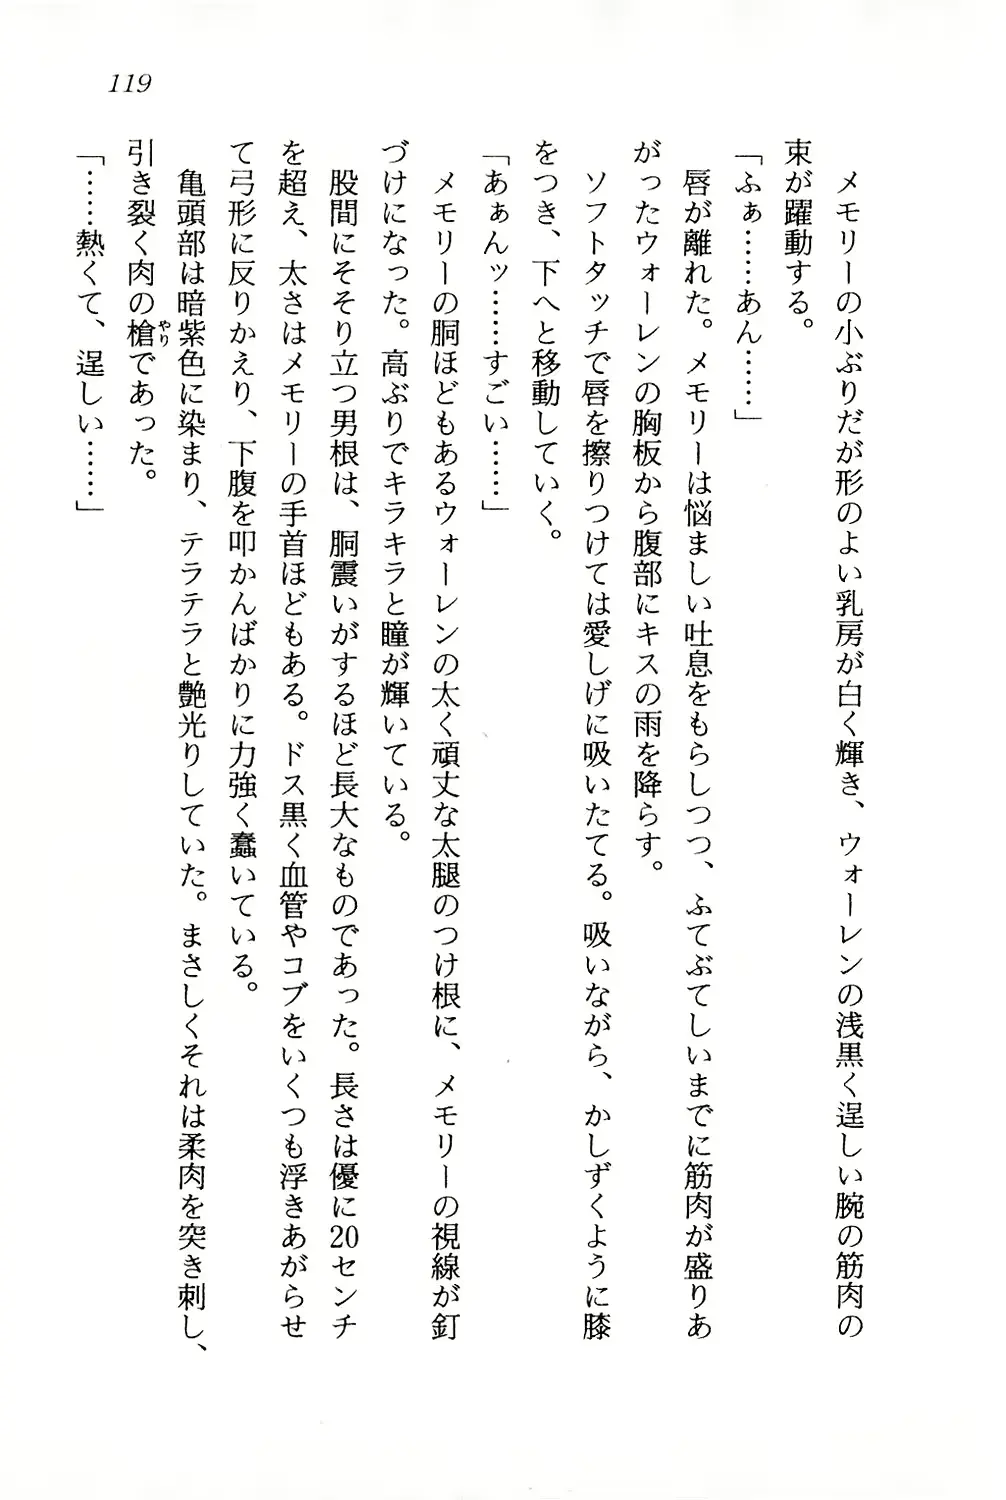 119
メモリーの小ぶりだが形のよい乳房が白く輝き、ウォーレンの浅黒く逞しい腕の筋肉の
束が躍動する。
「ふぁ……あん……」
唇が離れた。メモリーは悩ましい吐息をもらしつつ、ふてぶてしいまでに筋肉が盛りあ
がったウォーレンの胸板から腹部にキスの雨を降らす。
ソフトタッチで唇を擦りつけては愛しげに吸いたてる。吸いながら、かしずくように膝
をつき、下へと移動していく。
「あぁんッ……すごい……」
メモリーの胴ほどもあるウォーレンの太く頑丈な太腿のつけ根に、メモリーの視線が釘
づけになった。高ぶりでキラキラと瞳が輝いている。
股間にそそり立つ男根は、胴震いがするほど長大なものであった。長さは優に20センチ
を超え、太さはメモリーの手首ほどもある。ドス黒く血管やコブをいくつも浮きあがらせ
て弓形に反りかえり、下腹を叩かんばかりに力強く蠢いている。
亀頭部は暗紫色に染まり、テラテラと艶光りしていた。まさしくそれは柔肉を突き刺し、
引き裂く肉の槍やりであった。
「……熱くて、逞しい……」